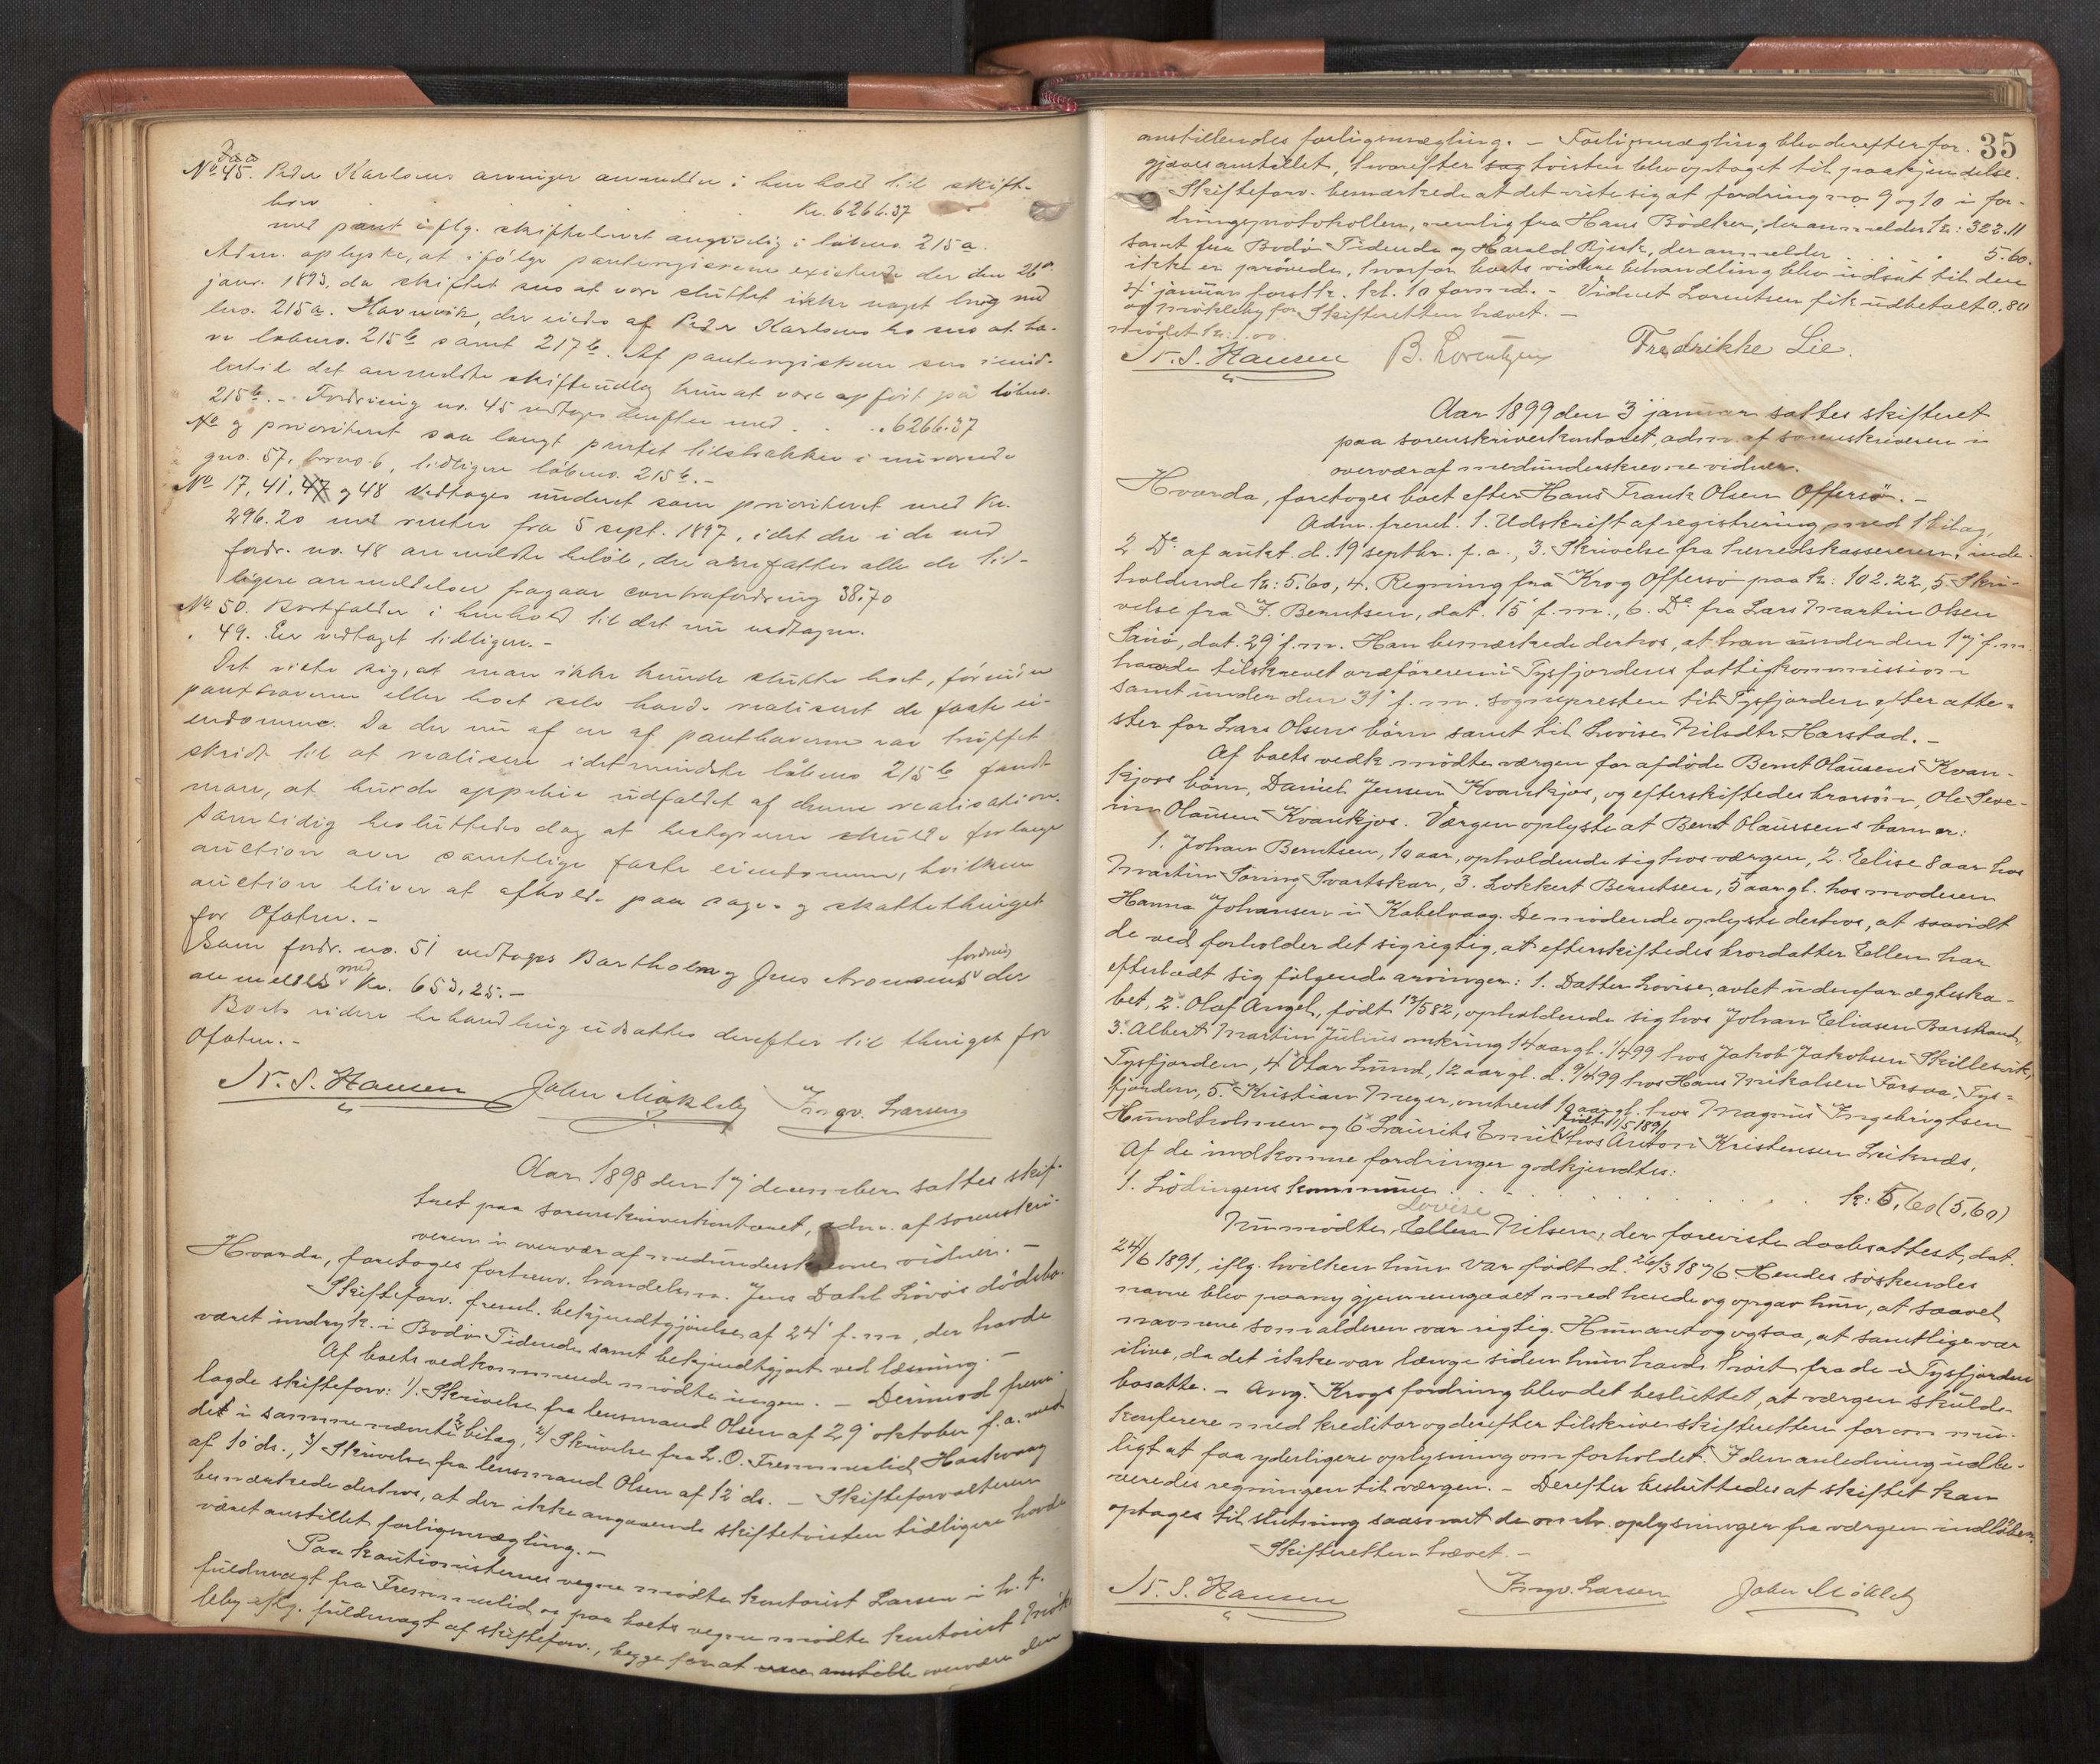 Faa
No 45. Peder Karlsens arvinger anmelder i henhold til skifte-
brev Kr. 6266.37
med pant iflg. skiftebrevet angivelig i löbeno. 215a.
Adm. oplyste, at ifölge panteregistrene existerede der den 26de
janr. 1893, da skiftet sees at være sluttet ikke noget brug med
lno. 215a. Havnvik, der eiedes af Peder Karlsens bo sees at ha-
ve löbeno. 215b samt 217b. Af panteregistrene sees imid-
lertid det anmeldte skifteudlæg kun at være opfört paa löbeno.
215b. - Fordring no. 45 vedtoges derefter med . . . 6266.37
og prioriteret saa langt pantet tilstrækker i nuværende
gno. 57, brno. 6, tidligere löbeno. 215b. -
No 17, 41, 47 og 48 Vedtoges under et som prioriteret med Kr.
296.20 med renter fra 5 sept. 1897, idet der i de ved
fordr. no. 48 anmeldte belöb, der omfatter alle de tid-
ligere anmeldelser fragaar contrafordring 38.70
No 50. Bortfalder i henhold til det nu vedtagne.
. 49. Er vedtaget tidligere. -
Det viste sig, at man ikke kunde slutte boet, förinden
panthaverne eller boet selv havde realiseret de faste ei-
endomme. Da der nu af en af panthaverne var truffet
skridt til at realisere idetmindste löbeno 215b fandt
man, at burde oppebie udfaldet af denne realisation.
Samtidig besluttedes dog at bestyreren skulde forlange
auction over samtlige faste eiendomme, hvilken
auction bliver at afholde paa sage- og skattethinget
for Ofoten. -
Som fordr. no. 51 vedtoges Bartholm og Jens Aronsens fordring der
anmeldes med Kr. 653,25. -
Boets videre behandling udsattes derefter til thinget for
Ofoten. -
N. S. Hansen John Mökleby Ingv. Larsen
Aar 1898 den 17 december sattes skif-
teret paa sorenskriverkontoret, adm. af sorenskri-
veren i overvær af medunderskrevne vidner. -
Hvorda, foretoges forhenv. handelsm. Jens Dahl Lövös dödsbo.
Skifteforv. freml. bekjendtgjörelse af 24' f. m., der havde
været indryk. i Bodö Tidende samt bekjendtgjort ved læsning. -
Af boets vedkommende mödte ingen. - Derimod frem-
lagde skifteforv: 1). Skrivelse fra lensmand Olsen af 29' oktober f.a. med
det i samme nævnte bilag, 2) Skrivelse fra L. O. Tremmelid Haakvaag
af 10' ds., 3) Skrivelse fra lensmand Olsen af 12' ds. - Skifteforvalteren
bemærkede derhos, at der ikke angaaende skiftetvisten tidligere havde
været anstillet forligsmægling. -
Paa kautionisternes vegne mödte kontorist Larsen i h. t.
fuldmagt fra Tremmelid og paa boets vegne mödte kontorist Mök-
leby iflg. fuldmagt af skifteforv., begge for at være anstille overvære den
35
anstillendes forligsmægling. - Forligsmægling blev derefter for-
gjæves anstillet, hvorefter sag tvisten blev optaget til paakjendelse.
Skifteforv. bemærkede at det viste sig at fordring no 9 og 10 i for-
dringsprotokollen, nemlig fra Hans Bödker, der anmelder kr: 322.11
samt fra Bodö Tidende og Harald Bjerk, der anmelder . . . . 5.60.
ikke er prövede, hvorfor boets videre behandling blev udsat til den
4' januar förstk. kl. 10 formd. - Vidnet Lorentsen fik udbetalt 0.80
og Mökleby for Skifteretten hævet. -
mödet kr. 1.00.
N. S. Hansen B. Lorentzen Fredrikke Lie.
Aar 1899 den 3 januar sattes skifteret
paa sorenskriverkontoret, adm. af sorenskriveren i
overvær af medunderskrevne vidner.
Hvorda, foretoges boet efter Hans Frank Olsen Offersö. -
Adm. freml. 1. Udskrift af registrering med 1 bilag,
2 Do af aukt. d. 19 septbr. f. a., 3. Skrivelse fra herredskassereren, inde-
holdende kr: 5.60, 4. Regning fra Krog Offersö paa kr: 102.22, 5 Skri-
velse fra I. Berntsen, dat. 15' f. m., 6. Do fra Lars Martin Olsen
Sanö, dat. 29' f. m. Han bemærkede derhos, at han under den 17' f. m.
havde tilskrevet ordföreren i Tysfjordens fattigkommission
samt under den 31' f. m. sognepresten til Tysfjorden efter atte-
ster for Lars Olsens börn samt til Lovise Nilsdtr. Harstad. -
Af boets vedk. mödte værgen for afdöde Bernt Olausens Kvan-
kjos börn, Daniel Jensen Kvankjos, og efterskiftedes brorsön, Ole Seve-
rin Olausen Kvankjos. Værgen oplyste at Bernt Olaussens barn er:
1. Johan Berntsen, 10 aar, opholdende sig hos værgen, 2. Elise 8 aar hos
Martin Söring Svartskar, 3. Lokkert Berntsen, 5 aar gl. hos moderen
Hanna Johansen i Kabelvaag. De mödende oplyste derhos, at saavidt
de ved forholder det sig rigtig, at efterskiftedes brordatter Ellen har
efterladt sig fölgende arvinger: 1. Datter Lovise, avlet udenfor ægteska-
bet, 2. Olaf Angel, födt 17/5 82, opholdende sig hos Johan Eliasen Barstrand,
3. Albert Martin Julius omkring 14 aar gl. 1/4 99 hos Jakob Jakobsen Skillevik,
Tysfjorden, 4' Otar Lund, 12 aar gl. d. 9/4 99 hos Hans Mikalsen Forsaa, Tys-
fjorden, 5. Kristian Meyer, omtrent 10 aar gl. hos Magnus Ingebrigtsen
Hundholmen og 6' Laurits Emil födt 1/5 1891 hos Anton Kristensen Leiknes,
Af de indkomne fordringer godkjendtes:
1. Lödingens kommune . . . . . . . . . . kr: 5,60 (5,60)
Nu mödte Lovise Ellen Nilsen, der foreviste daabsattest, dat.
24/6 1891, iflg. hvilken hun var födt d. 26/3 1876 Hendes söskendes
navne blev paany gjennemgaaet med hende og opgav hun, at saavel
navnene som alderen var rigtig. Hun antog ogsaa, at samtlige var
ilive, da det ikke var længe siden hun havde hört fra de i Tysfjorden
bosatte. - Ang. Krogs fordring blev det besluttet, at værgen skulde
konferere med kreditor og derefter tilskriver skifteretten for om mu-
ligt at faa yderligere oplysning om forholdet. I den anledning udle-
veredes regningen til værgen. - Derefter besluttedes at skiftet kan
optages til slutning saasnart de omtv. oplysninger fra værgen indlöber.
Skifteretten hævet. -
N. S. Hansen Ingv. Larsen John Mökleby